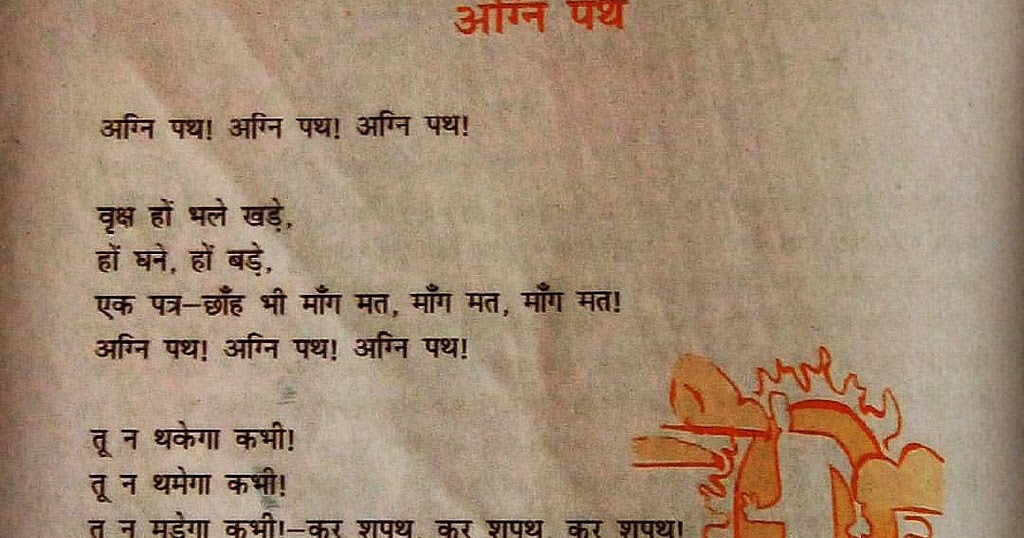 अग्नि पथ
अग्नि पथ! अग्नि पथ! अग्नि पथ!
वृक्ष हों भले खड़े,
हों घने, हों बड़े,
एक पत्र–छाँह भी माँग मत, माँग मत, माँग मत!
अग्नि पथ! अग्नि पथ! अग्नि पथ!
तू न थकेगा कभी!
तू न थमेगा कभी!
तू न मुड़ेगा कभी!–कर शपथ, कर शपथ, कर शपथ!